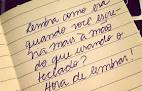 Lembra como era
quando você escre-
via mais à mão
do que usando o
teclado?
Hora de lembrar!